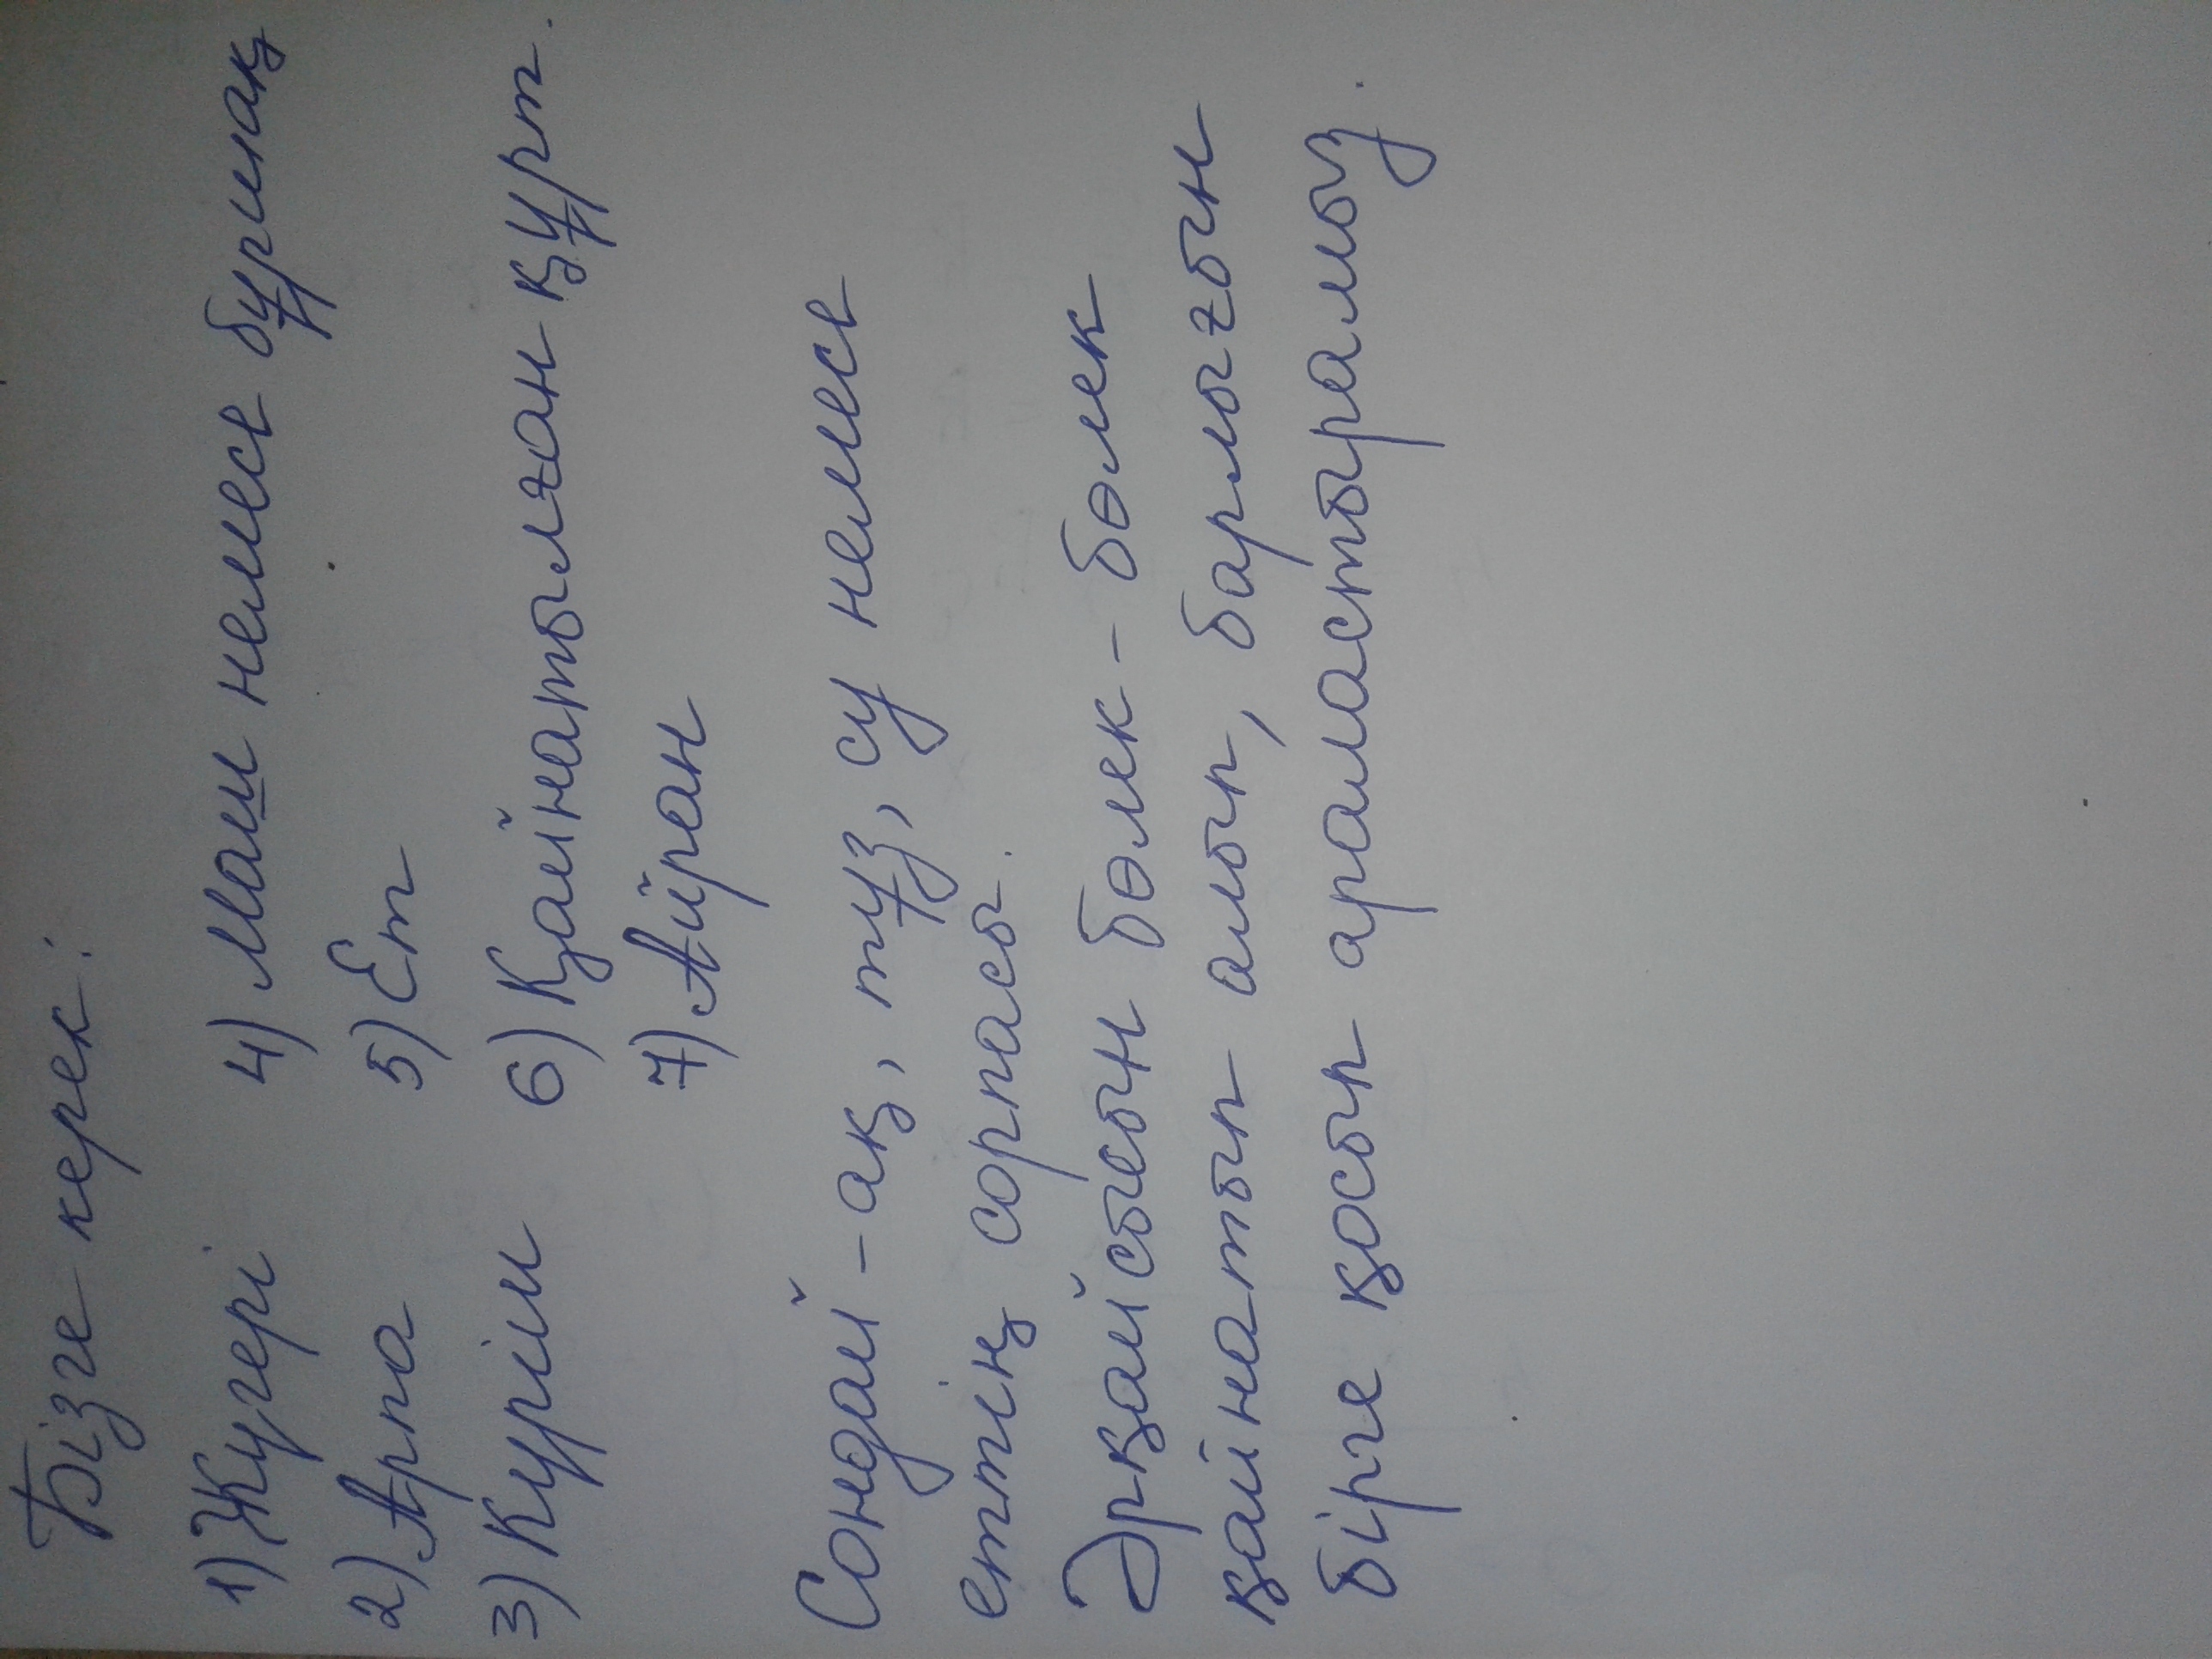 Бізге керек:
1) Жугері 4) Маш немесе бұршақ
2) Арпа 5) Ет
3) Куріш 6) Қайнатылған құрт.
7) Айран
Сондай-ақ, тұз, су немесе
еттің сорпасы.
Әрқайсысын бөлек-бөлек
қайнатып алып, барлығын
бірге қосып араластырамыз.